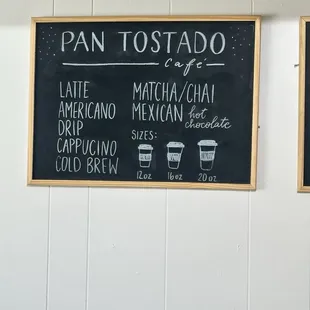 PAN TOSTADO
Café
LATTE
AMERICANO
DRIP
CAPPUCINO
COLD BREW
MATCHA/CHAI
MEXICAN hot
chocolate
SIZES:
12oz 16oz 20oz